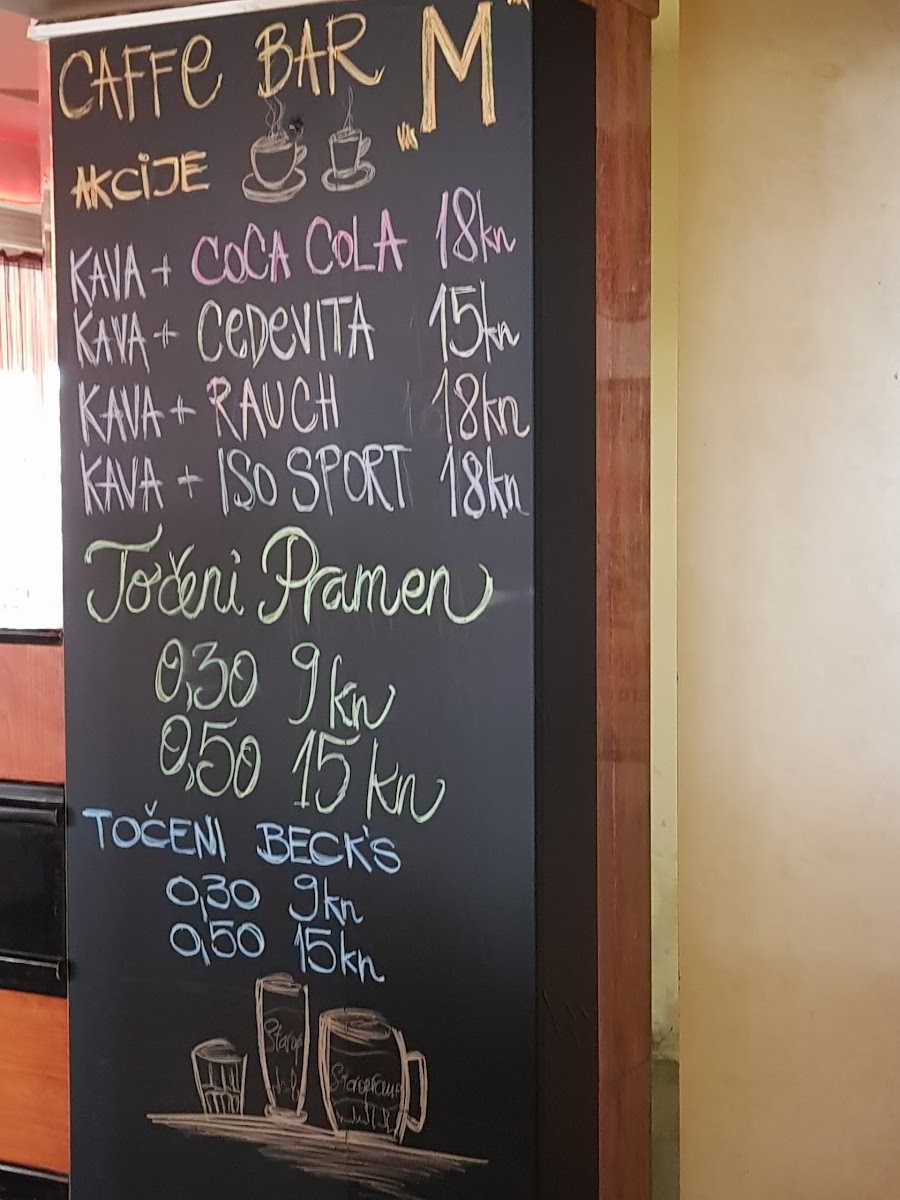 CAFFe BAR "M"
AKCiJE
KAVA + COCA COLA 18kn
KAVA + CeDeVITA 15kn
KAVA + RAUCH 18kn
KAVA + ISO SPORT 18kn
Točeni Pramen
0,30 9kn
0,50 15kn
TOČENI BECK'S
0,30 9kn
0,50 15kn